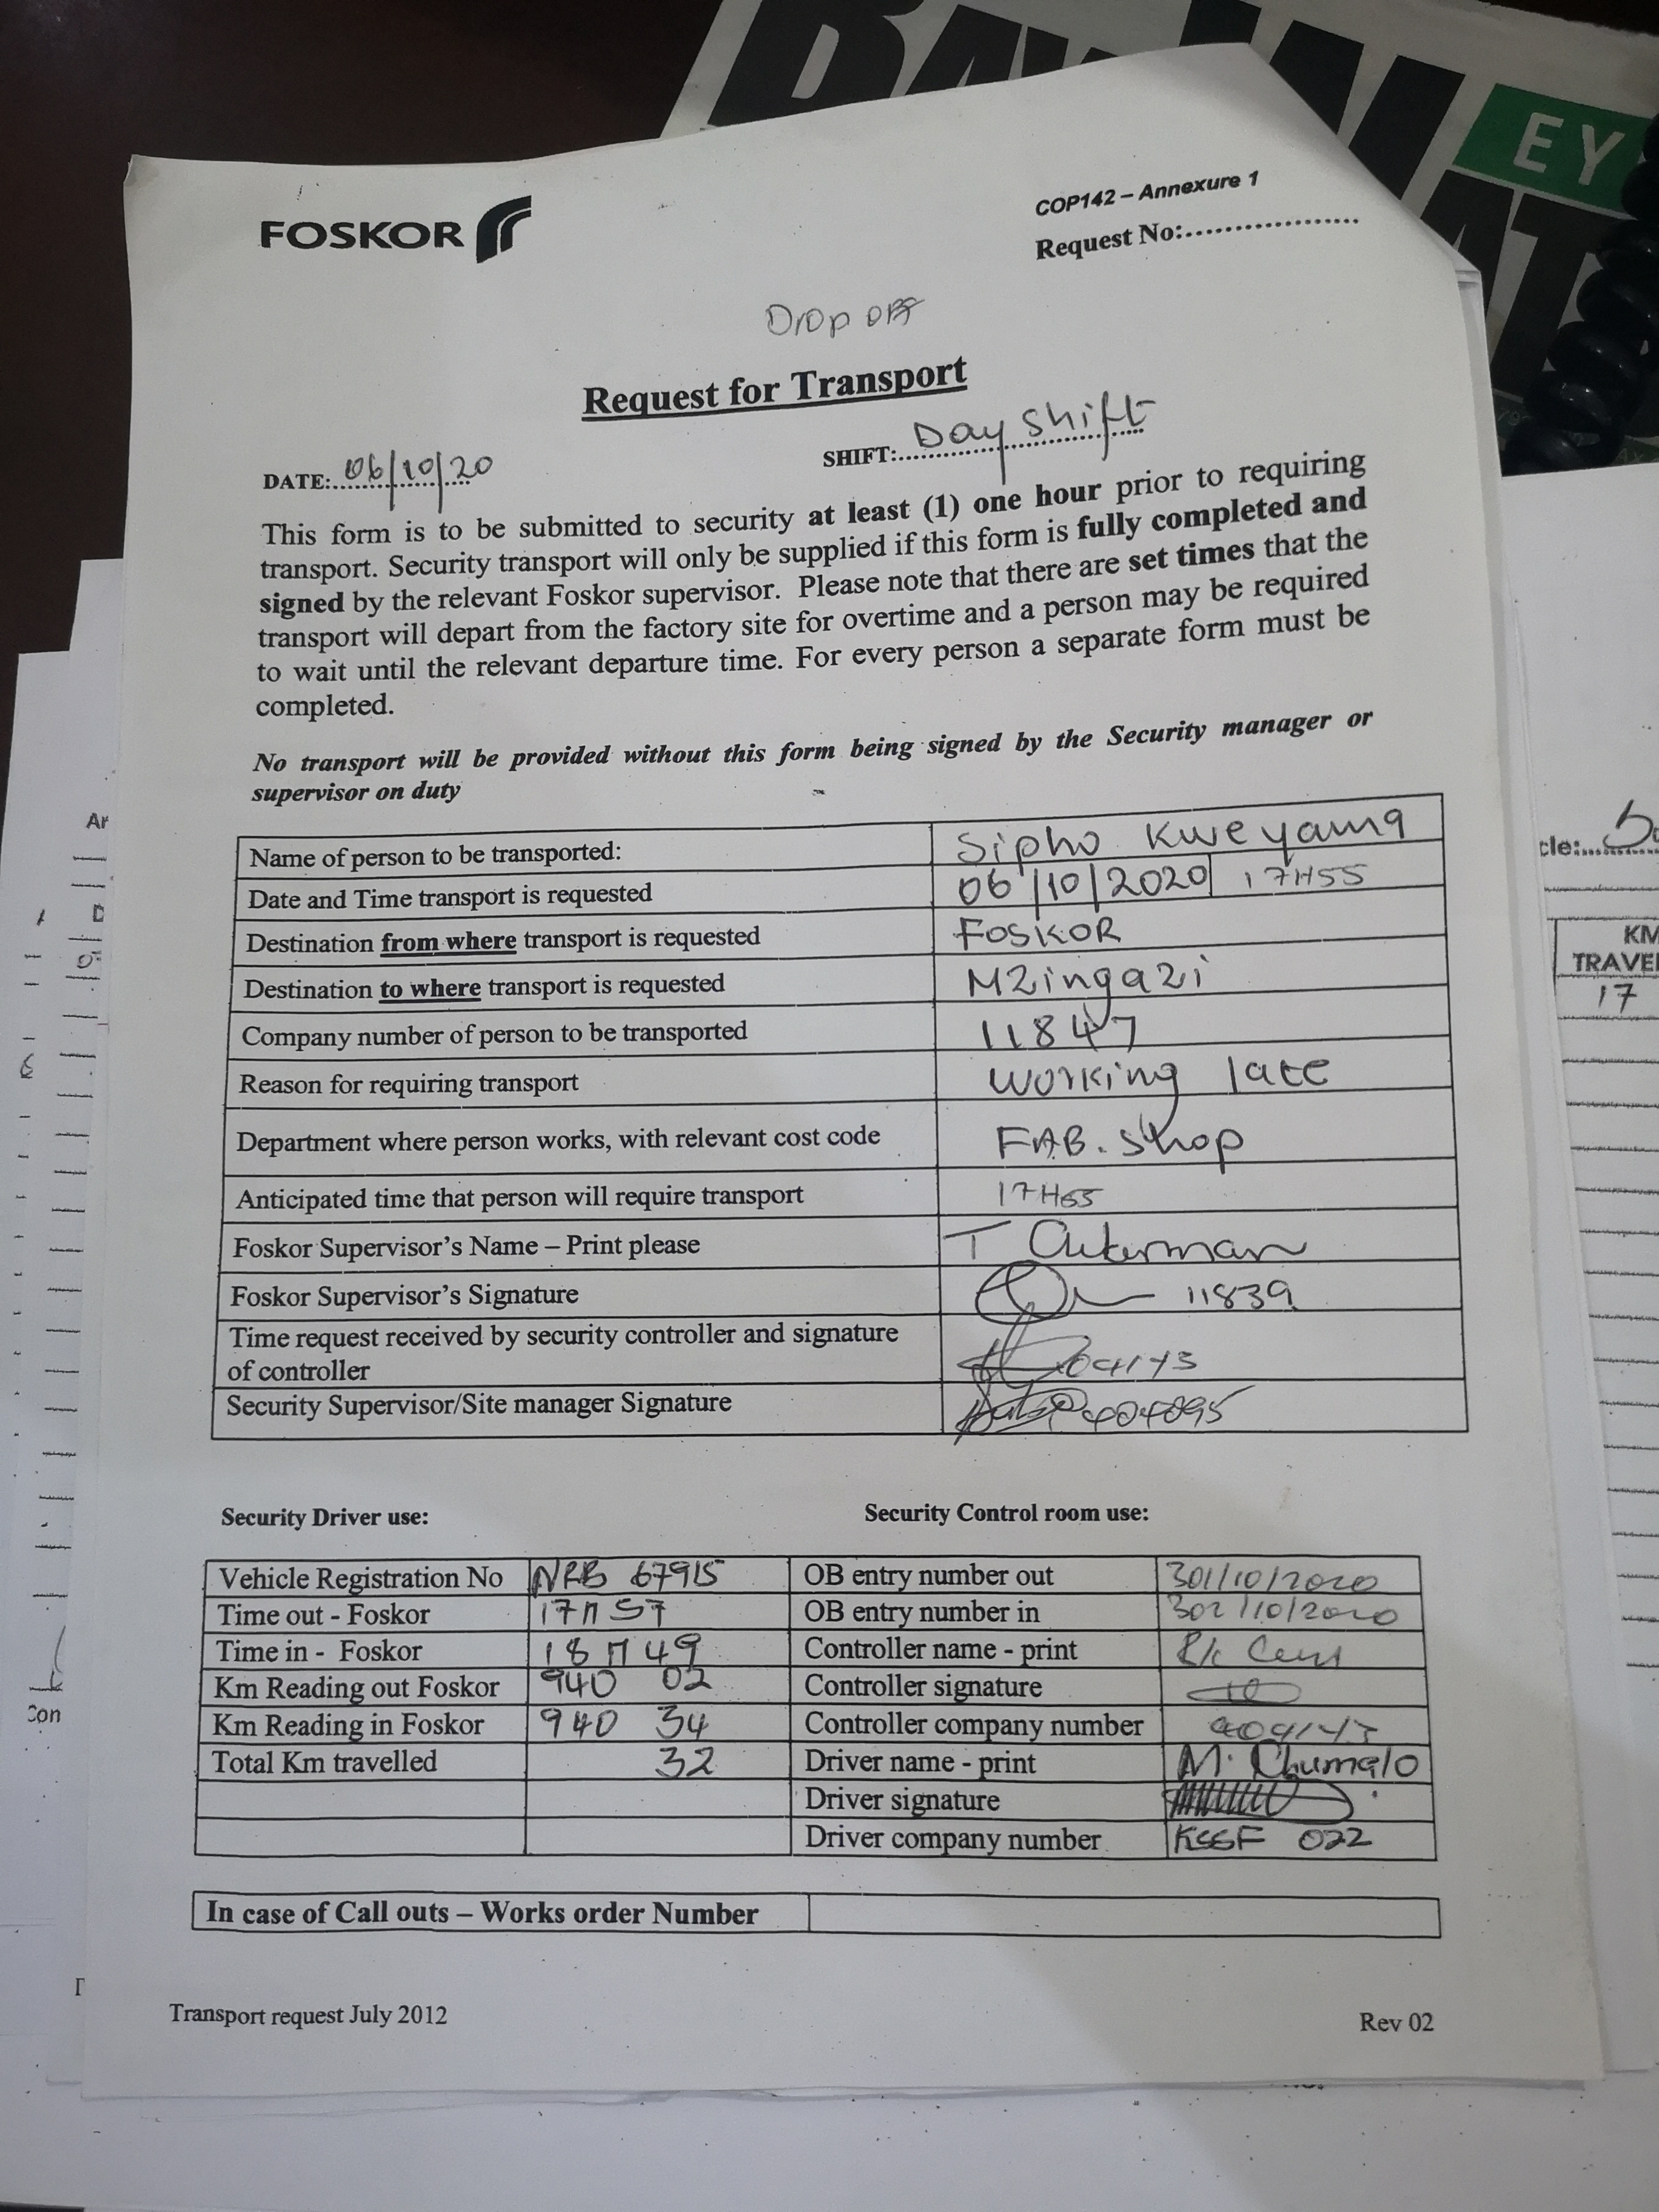 EY
FOSKOR
COP142 – Annexure 1
Request No:...................
Drop off
Request for Transport
DATE: 06/10/20
SHIFT: Day Shift
This form is to be submitted to security at least (1) one hour prior to requiring
transport. Security transport will only be supplied if this form is fully completed and
signed by the relevant Foskor supervisor. Please note that there are set times that the
transport will depart from the factory site for overtime and a person may be required
to wait until the relevant departure time. For every person a separate form must be
completed.
No transport will be provided without this form being signed by the Security manager or
supervisor on duty
Name of person to be transported: Sipho Kweyama
Date and Time transport is requested 06/10/2020 17H55
Destination from where transport is requested FOSKOR
Destination to where transport is requested Mzingazi
Company number of person to be transported 11847
Reason for requiring transport working late
Department where person works, with relevant cost code FAB. Shop
Anticipated time that person will require transport 17H55
Foskor Supervisor's Name – Print please T Ackerman
Foskor Supervisor's Signature 11839
Time request received by security controller and signature
of controller
Security Supervisor/Site manager Signature
Security Driver use: Security Control room use:
Vehicle Registration No NRB 67915 OB entry number out 301/10/2020
Time out - Foskor 17H57 OB entry number in 302/10/2020
Time in - Foskor 18H49 Controller name - print
Km Reading out Foskor 940 02 Controller signature
Km Reading in Foskor 940 34 Controller company number
Total Km travelled 32 Driver name - print M. Chumalo
Driver signature
Driver company number KSSF 022
In case of Call outs – Works order Number
Transport request July 2012 Rev 02
KM
TRAVE
17